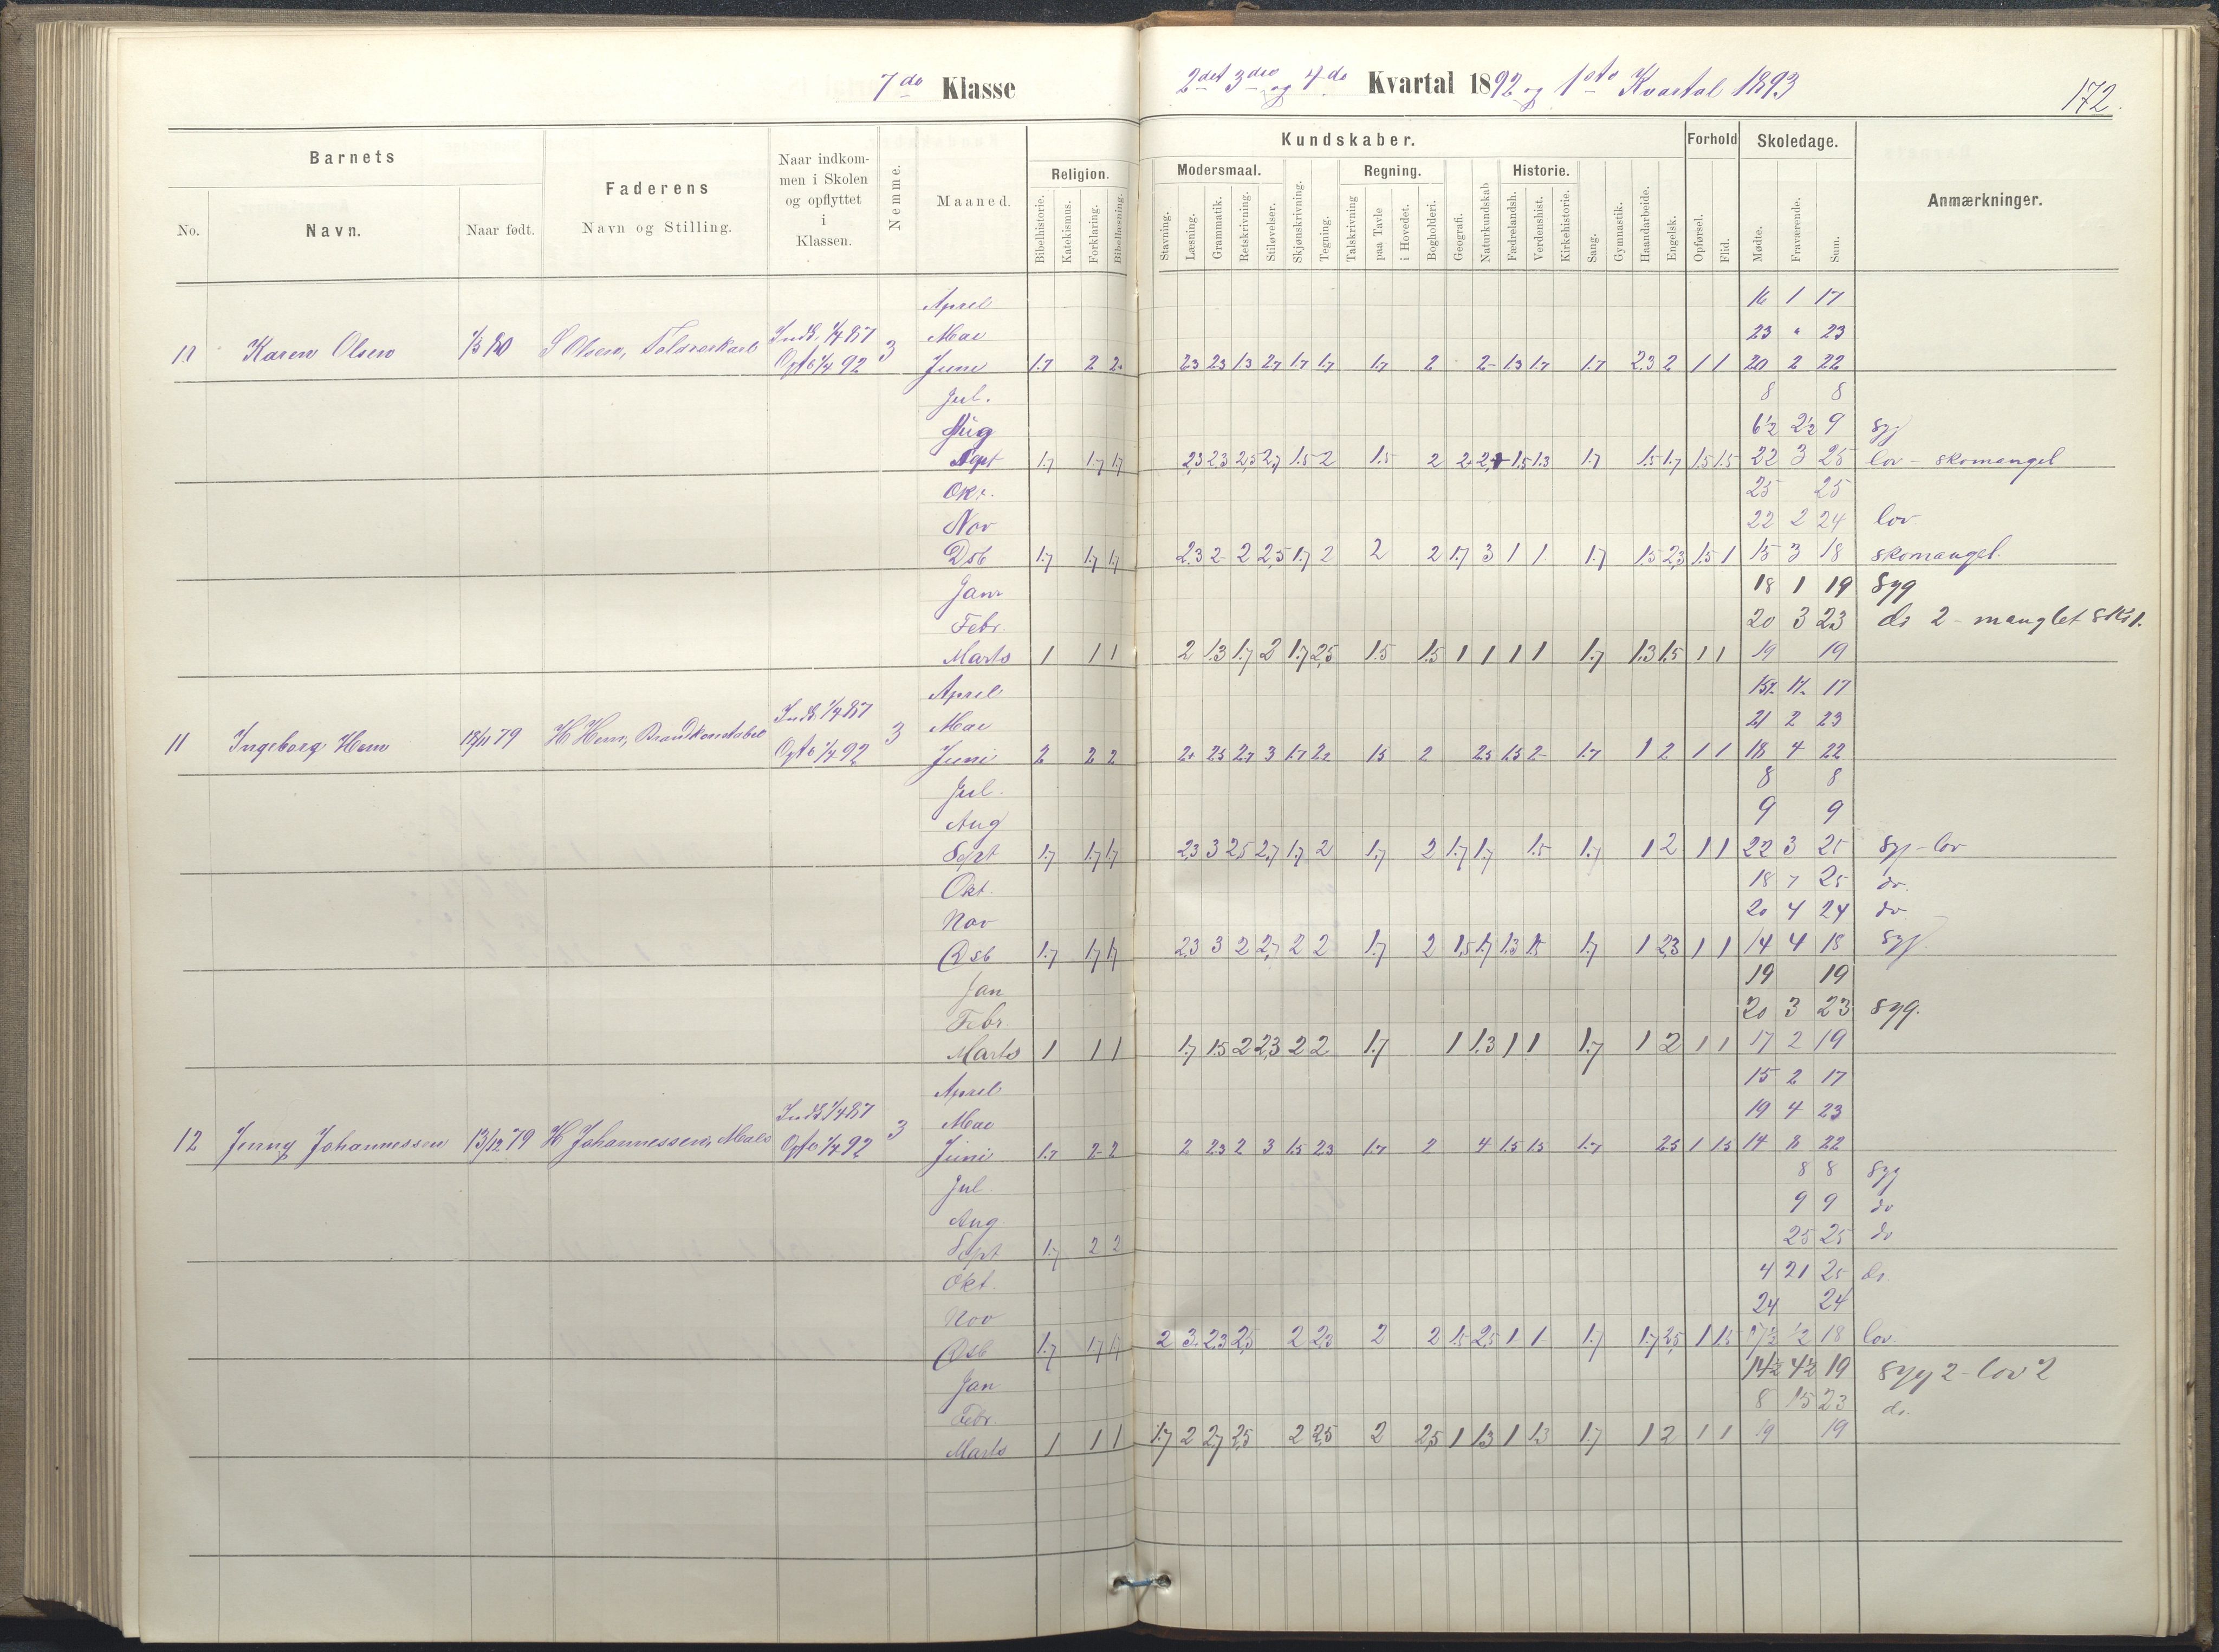 7de Klasse
2det 3die og 4de Kvartal 1892 og 1ste Kvartal 1893
172.
Barnets
No.
Navn.
Naar født.
Faderens
Navn og Stilling.
Naar indkom-
men i Skolen
og opflyttet
i
Klassen.
Nemme.
Maaned.
Kundskaber.
Religion.
Bibelhistorie.
Katekismus.
Forklaring.
Bibellæsning.
Modersmaal.
Stavning.
Læsning.
Grammatik.
Retskrivning.
Stiløvelser.
Skjønskrivning.
Tegning.
Regning.
Talskrivning
paa Tavle
i Hovedet.
Bogholderi.
Geografi.
Naturkundskab
Historie.
Fædrelandsh.
Verdenshist.
Kirkehistorie.
Sang.
Gymnastik.
Haandarbeide.
Engelsk.
Forhold
Opførsel.
Flid.
Skoledage.
Mødte.
Fraværende.
Sum.
Anmærkninger.
April 16 1 17
Mai 23 " 23
Karen Olsen Inds. 1/4 87 Opfl. 1/4 92 3
Juni 1.7 2 2 20 2 22
Jul. 8 8
Aug 6½ 2½ 9 Syg
Sept 1.7 1.7 1.7 22 3 25 lov - skomangel
Okt. 25 25
Nov 22 2 24 lov
Dsb 1.7 1.7 1.7 2.3 2 2 2.5 1.7 2 2 2 1.7 3 1 1 1.7 1.5 2.3 1.5 1 15 3 18 skomangel.
Janr 18 1 19 Syg
Febr. 20 3 23 do 2 - manglet sko 1.
Marts 1 1 1 2 1.3 1.7 2 1.7 2.5 1.5 1.5 1 1 1 1 1.7 1.3 1.5 1 1 19 19
April 17
Mai 21 2 23
11 Ingeborg Hem 79 H Hem, Brandkonstabel Inds 1/4 87 Opfl 1/4 92 3
Juni 2 2 2 18 4 22
Jul. 8 8
Aug 9 9
Sept 1.7 1.7 1.7 2.3 3 2.5 2.7 1.7 2 1.7 2 1.7 1.7 1.5 1.7 1 2 1 1 22 3 25 Syg - lov
Okt. 18 7 25 do.
Nov 20 4 24 do
Dsb 1.7 1.7 1.7 2.3 3 2 2.7 2 2 1.7 2 1.5 1.7 1.3 1.5 1.7 1 2.3 1 1 14 4 18 Syg.
Jan 19 19
Febr. 20 3 23 Syg.
Marts 1 1 1 1.7 1.5 2 2.3 2 2 1.7 1 1.3 1 1 1.7 1 2 1 1 17 2 19
April 15 2 17
Mai 19 4 23
12 Jenny Johannessen 13/12 79 H Johannessen, Inds 1/4 87 Opfl 1/4 92 3
Juni 1.7 2 2 2 2.3 2 3 1.5 2.3 1.7 2 4 1.5 1.5 1.7 2.5 1 1.5 14 8 22
Jul. 8 8 Syg
Aug 9 9 do
Sept 1.7 2 2 25 25 do
Okt. 4 21 25 do.
Nov 24 24
Dsb 1.7 1.7 1.7 2 3 2.3 2.5 2 2.3 2 2 1.5 2.5 1 1 1.7 1.7 2.5 1 1.5 17½ ½ 18 lov.
Jan 14½ 4½ 19 Syg 2 - lov 2
Febr. 8 15 23 do.
Marts 1 1 1 1.7 2 2.7 2.5 2 2.5 2 2.5 1 1.3 1 1.3 1.7 1 2 1 1 19 19